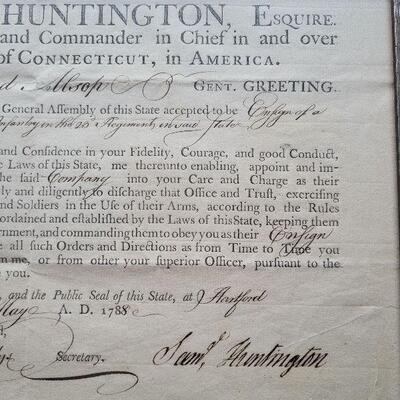 HUNTINGTON, ESQUIRE.
and Commander in Chief in and over
of CONNECTICUT, in AMERICA.
d Allsop GENT. GREETING.
General Assembly of this State accepted to be Ensign of a
Infantry in the 20th Regiment, in said State
and Confidence in your Fidelity, Courage, and good Conduct,
e Laws of this State, me thereunto enabling, appoint and im-
he said Company into your Care and Charge as their
ly and diligently to discharge that Office and Trust, exercising
and Soldiers in the Use of their Arms, according to the Rules
ordained and established by the Laws of this State, keeping them
ernment, and commanding them to obey you as their Ensign
e all such Orders and Directions as from Time to Time you
m me, or from other your superior Officer, pursuant to the
e you.
, and the Public Seal of this State, at Hartford
May A. D. 1788
Secretary.
Sam.l Huntington